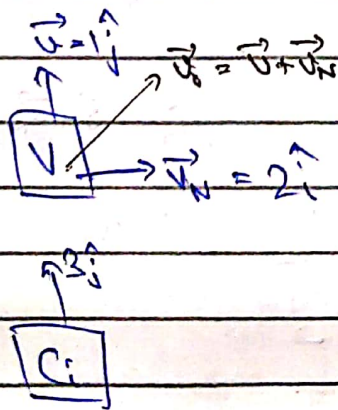 v⃗ = 1ĵ
v⃗₀ = v⃗ + v⃗_N
V
v⃗_N = 2î
3ĵ
Ci